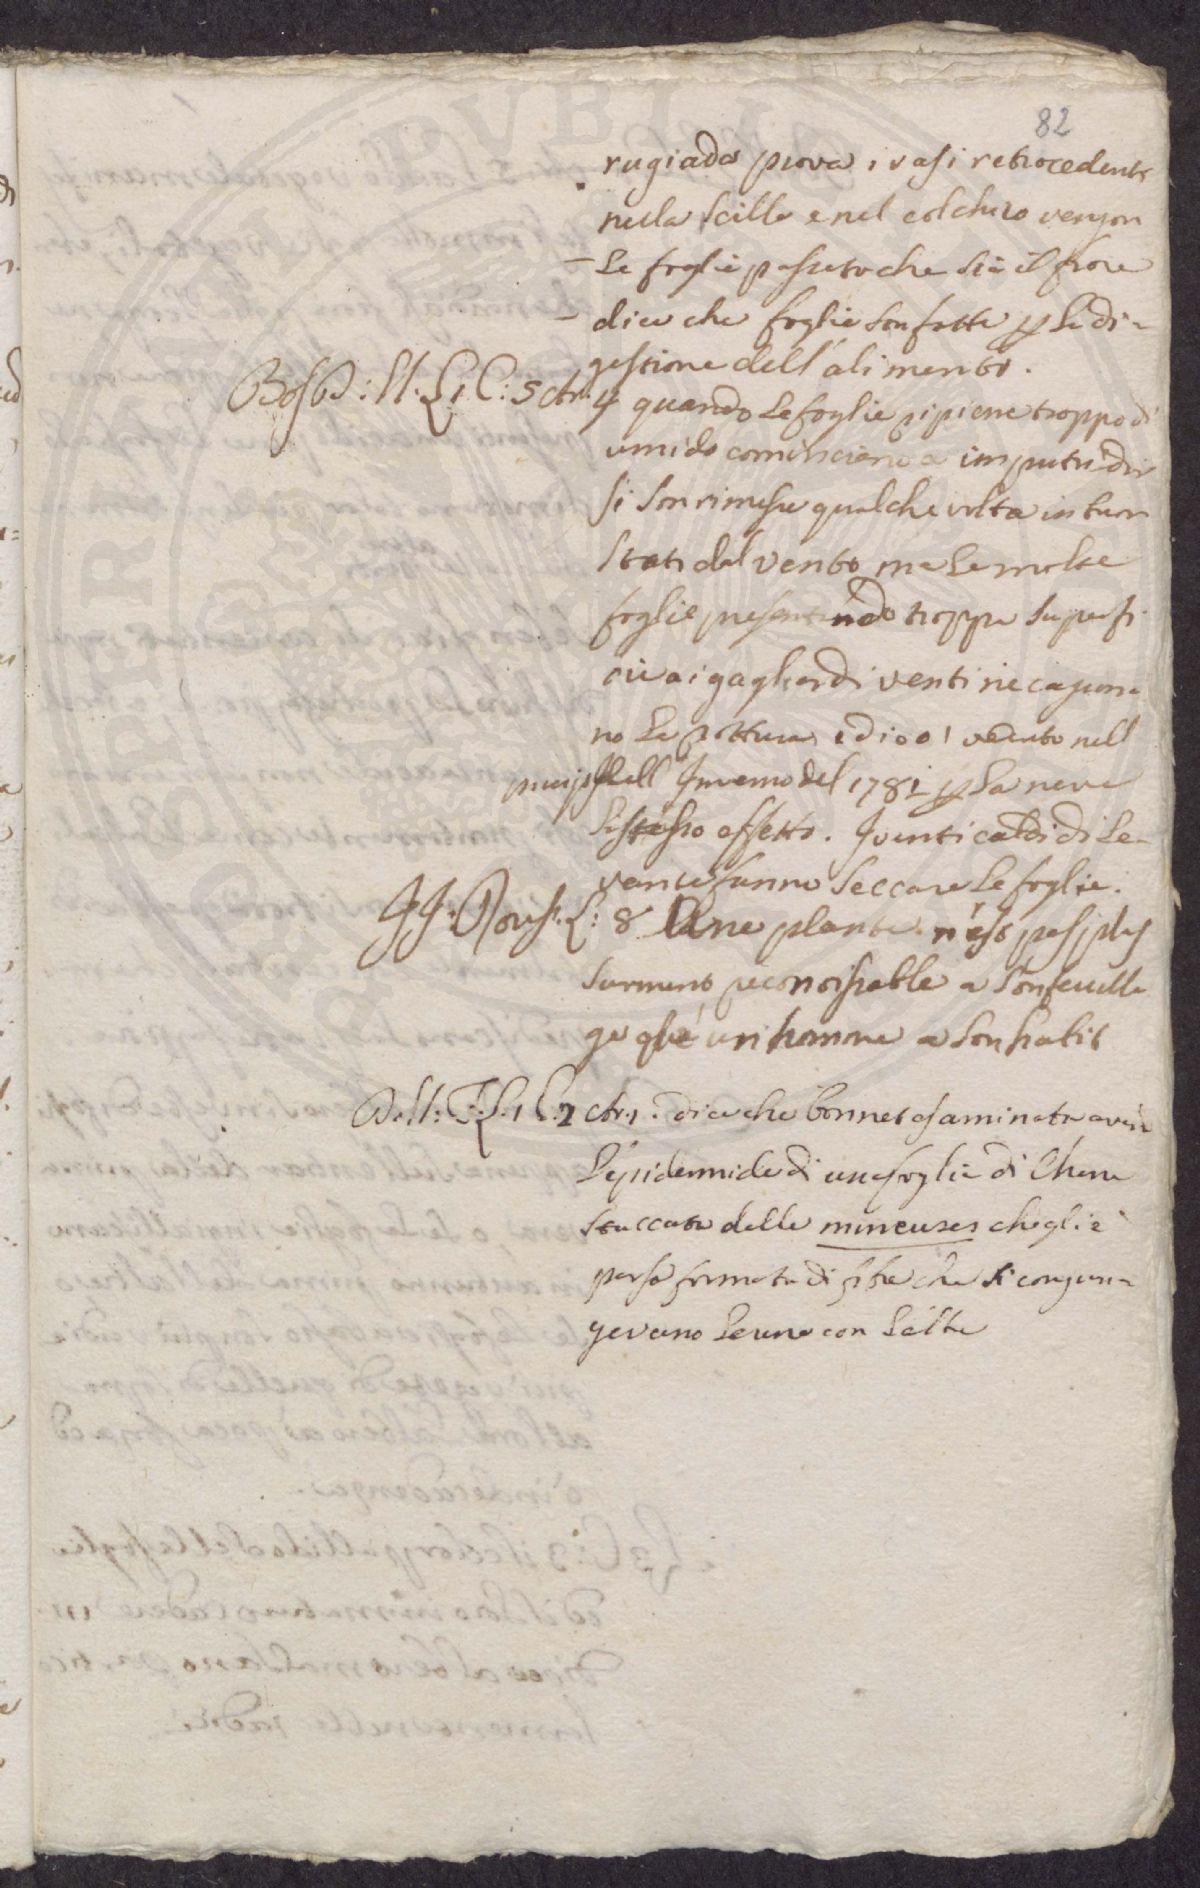 82
rugiada prova i vasi retrocedenti
nella scilla e nel colchico vengon
le foglie passato che sia il fiore
dice che foglie son fatte p la di-
gestione dell'alimento.
Bosb: ll. L1 C: 5 ctr. 4 quando le foglie ripiene troppo di
umido cominciano a imputridir
si son rimesse qualche volta
stati dal vento ma le molte
foglie presentando troppa superfi
cie ai gagliardi venti ne cagiona
no la rottura ed io o veduto nell
princip dell Inverno del 1781 p la neve
listesso effetto. I venti caldi di Le-
vante fanno seccare le foglie.
JJ. Rous. L: 8 Une plante n'est pas plus
surment reconoissable a son feuilla
ge qué un homme a son habit
L: 1 C: 2 ctr. 1. dice che bonnet esaminata avea
l'epidermide di una foglia di Chene
staccata dalle mineuses che gli è
parsa formata di fibre che si congiun
gevano le une con l'alte